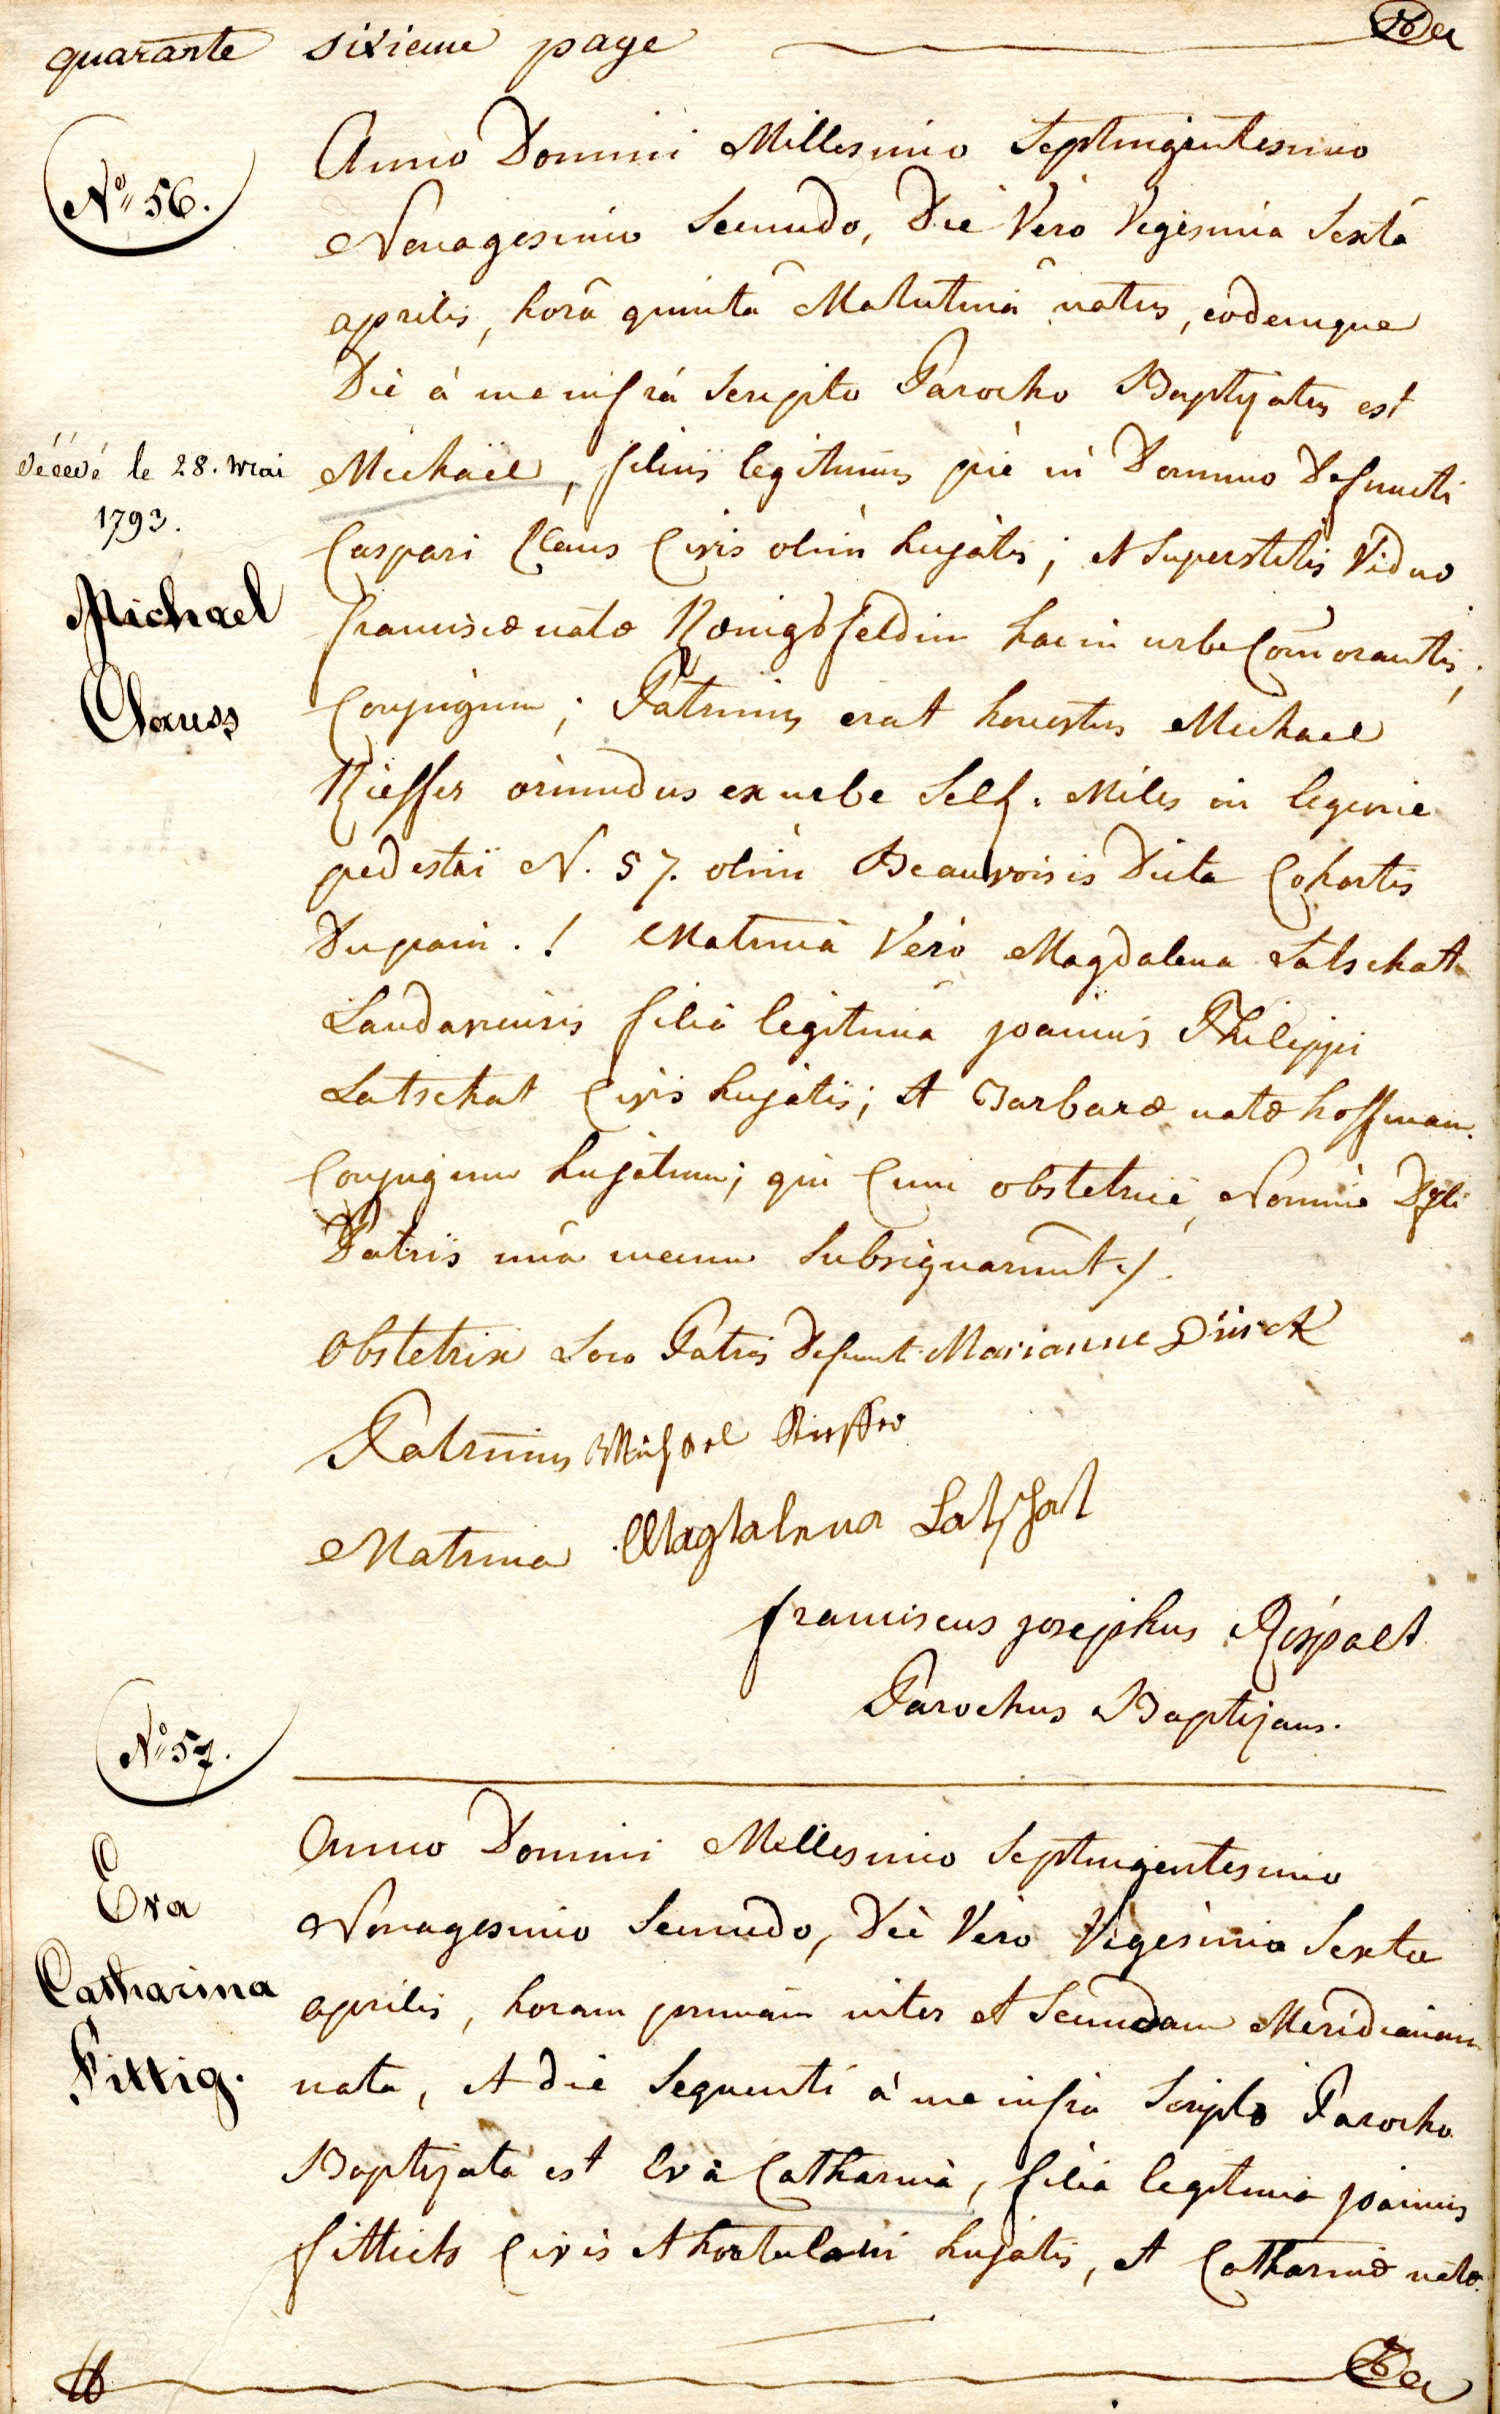 quarante sixieme page
Nº 56.
Anno Domini Millesimo Septingentesimo
Nonagesimo Secundo, Die Vero Vigesima Sexta
aprilis, horâ quinta Matutina natus, eodemque
Die à me infrà Scripto Parocho Baptizatus est
Décédé le 28. mai
1793.
Michael
Clauss
Michaël, filius legitimus piè in Domino Defuncti
Caspari Claus Civis olim hujatis; et Superstitis Viduæ
franciscæ natæ Königsfeldin hac in urbe Com̄orantis,
Conjugum; Patrinus erat honestus Michael
Kieffer oriundus ex urbe Self. Miles in legione
pedestri N. 57. olim Beauvoisis Dicta Cohortis
Dupain.! Matrina Verò Magdalena Latschat
Landaviensis filia legitima joannis Philippi
Latschat Civis hujatis; et Barbaræ natæ hoffmann.
Conjugum hujatum; qui Cum obstetrice, Nomine Dfti
Patris unà mecum Subsignarunt./.
Obstetrix Loco Patris Defuncti Marianne Dürck
Patrinus Michael Kieffer
Matrina Magdalena Latschat
franciscus josephus Rispalt
Parochus Baptizans.
Nº 57.
Eva
Catharina
Fittig.
Anno Domini Millesimo Septingentesimo
Nonagesimo Secundo, Die Vero Vigesima Sexta
aprilis, horam primam inter et Secundam Meridianam
nata, et die Sequenti à me infrà Scripto Parocho
Baptizata est Eva Catharina, filia legitima joannis
fittich Civis et hortulani hujatis, et Catharinæ natæ